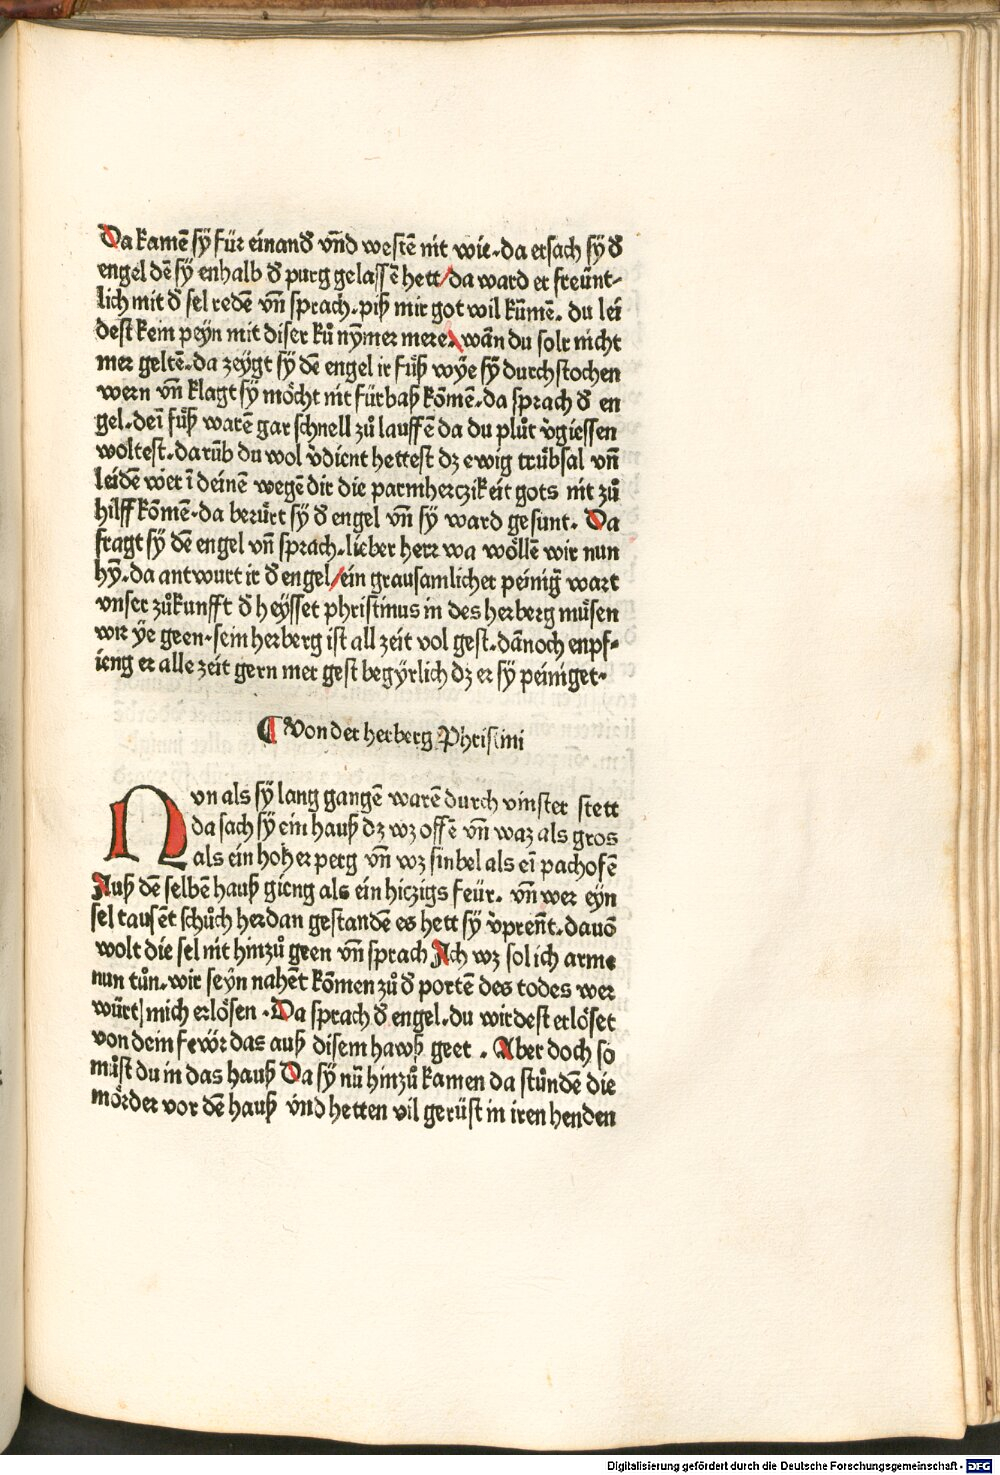 Da kamē sy̋ für einand᷑ vn̄d westē nit wie.da ersach sy̋ d᷑
engel dē sy̋ enhalb d᷑ purg gelassē hett/da ward er freünt⸗
lich mit d᷑ sel redē vn̄ sprach.piß mir got wil kūmē. du lei
dest kein pey̋n mit diser ků ny̋mer mere.wān du solt nicht
mer geltē.da zey̋gt sy̋ dē engel ir fůß wy̋e sy̋ durchstochen
wern vn̄ klagt sy̋ mȯcht nit fürbaß kōmē.da sprach d᷑ en
gel.dei̅ fůß warē gar schnell zů lauffē da du plůt v᷑giessen
woltest.darūb du wol v᷑dient hettest dz ewig trůbsal vn̄
leidē wer i̅ deinē wegē dir die parmherczikeit gots nit zů
hilff kōmē.da berůrt sy̋ d᷑ engel vn̄ sy̋ ward gesunt. Da
fragt sy̋ dē engel vn̄ sprach.lieber herr wa wöllē wir nun
hy̋.da antwurt ir d᷑ engel/ein grausamlicher peinig᷑ wart
vnser zůkunfft d᷑ hey̋sset phristinus in des herberg můsen
wir y̋e geen.sein herberg ist all zeit vol gest.dānoch enpf⸗
ieng er alle zeit gern mer gest begy̋rlich dz er sy̋ peiniget.
¶ Von der herberg Phristini
Nvn als sy̋ lang gangē warē durch vinster stett
da sach sy̋ ein hauß dz wz offē vn̄ waz als gros
als ein hoher perg vn̄ wz sinbel als ei̅ pachofē
Auß dē selbē hauß gieng als ein hiczigs feür. vn̄ wer ey̋n
sel tausēt schůch herdan gestandē es hett sy̋ v᷑preñt.dauō
wolt die sel nit hinzů geen vn̄ sprach Ach wz sol ich arme
nun tůn.wir sey̋n nahēt kōmen zů d᷑ portē des todes wer
würt mich erlösen .Da sprach d᷑ engel.du wirdest erlöset
von dein fewr das auß disem hawß geet . Aber doch so
můst du in das hauß Da sy̋ nū hinzů kamen da stůndē die
mörder vor dē hauß vnd hetten vil gerüst in iren henden
Digitalisierung gefördert durch die Deutsche Forschungsgemeinschaft - DFG